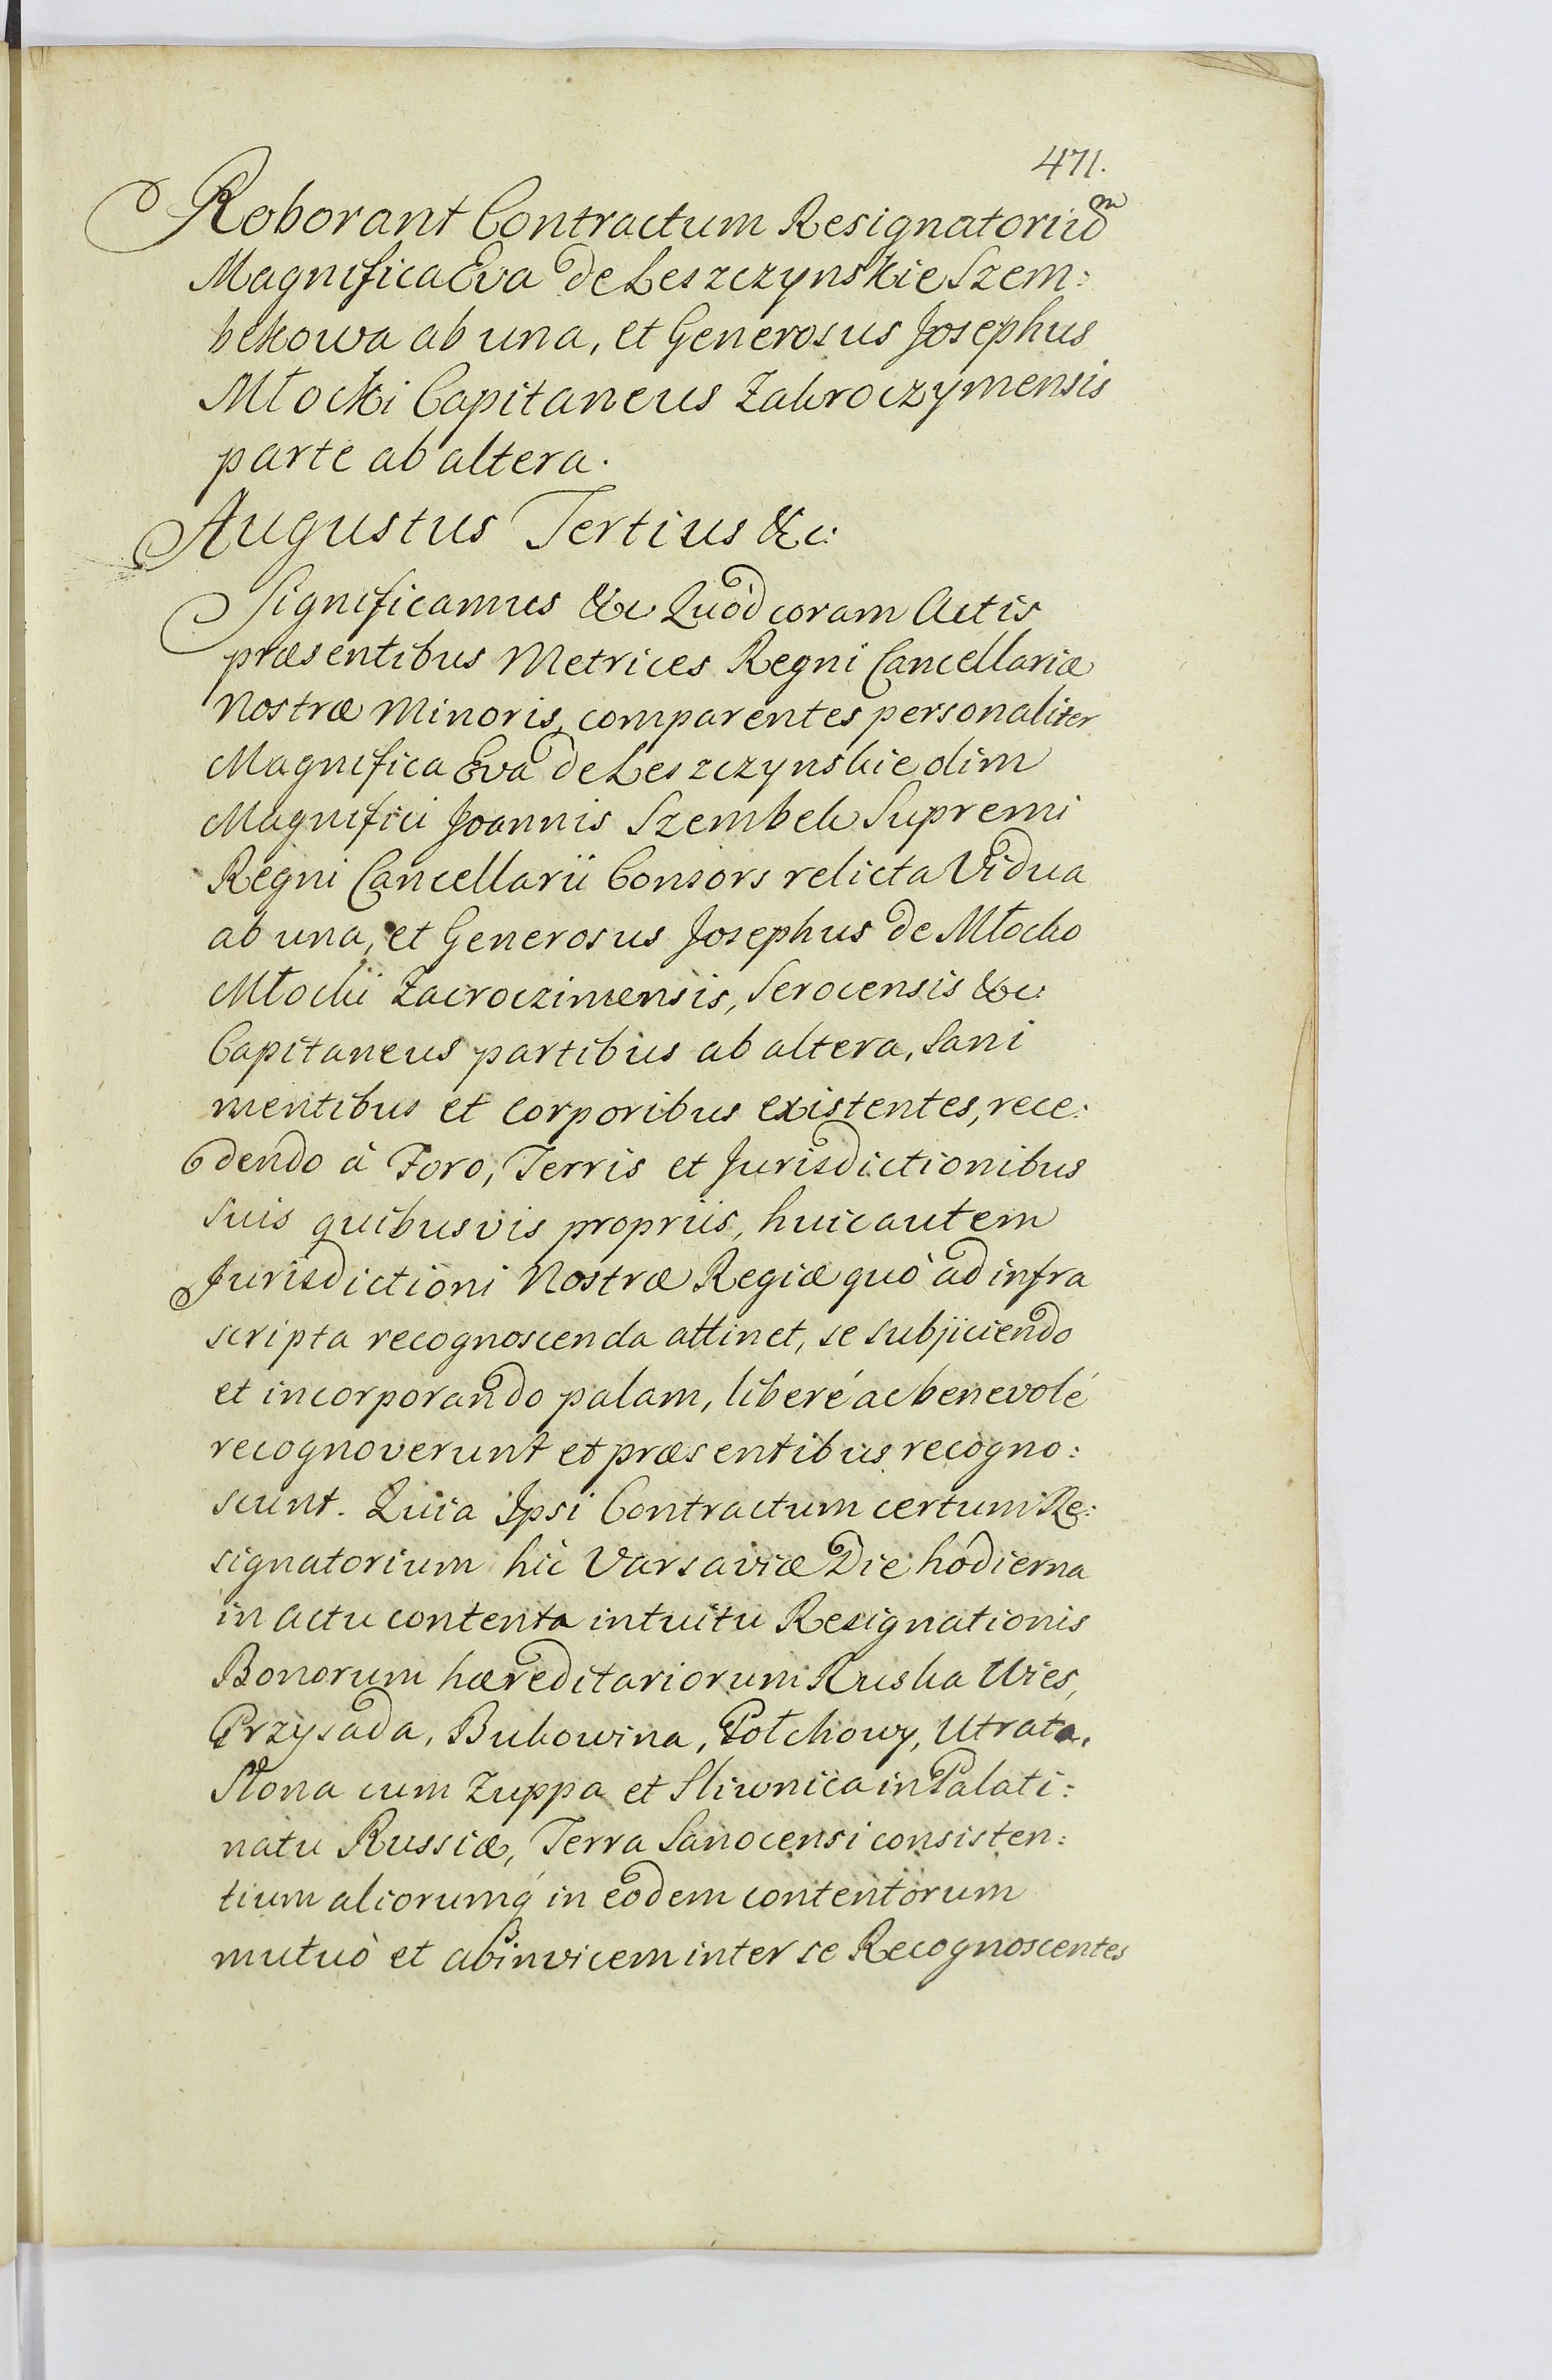 471.
Roborant Contractum Resignatoriũm
Magnifica Eva de Leszczynskie Szem:
bekowa ab una, et Generosus Josephus
Młocki Capitaneus Zakroczymensis
parte ab altera.
Augustus Tertius &c:
Significamus &c Quòd coram Actis
præsentibus Metrices Regni Cancellariæ
Nostræ Minoris, comparentes personaliter
Magnifica Eva de Leszczynskie olim
Magnifici Joannis Szembek Supremi
Regni Cancellarii Consors relicta Vidua
ab una, et Generosus Josephus de Młocko
Młocki Zacroczimensis, Serocensis &c:
Capitaneus partibus ab altera, Sani
mentibus et corporibus existentes, rece:
dendo à Foro, Terris et Jurisdictionibus
suis quibusvis propriis, huic autem
Jurisdictioni Nostræ Regiæ quò ad infra
scripta recognoscenda attinet, se subjiciendo
et incorporando palam, liberé ac benevolé
recognoverunt et præsentibus recogno:
scunt. Quia Ipsi Contractum certum Re:
signatorium hic Varsaviæ Die hodierna
in actu contenta intuitu Resignationis
Bonorum hæreditariorum Ruska Wies,
Przysada, Bukowina, Połchowy, Utrata,
Słona cum Zuppa et Sliwnica in Palati:
natu Russiæ, Terra Sanocensi consisten:
tium aliorumq́ in eodem contentorum
mutuò et abinvicem inter se Recognoscentes